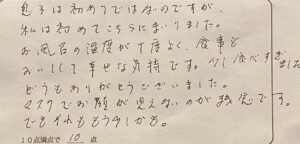 息子は初めてではないのですが、
私は初めてこちらにまいりました。
お風呂の温度が丁度よく、食事も
おいしくて幸せな気持です。少し食べすぎました
どうもありがとうございました。
マスクでお顔が見えないのが残念です。
でもそれももう少しかも。
10点満点で 10 点